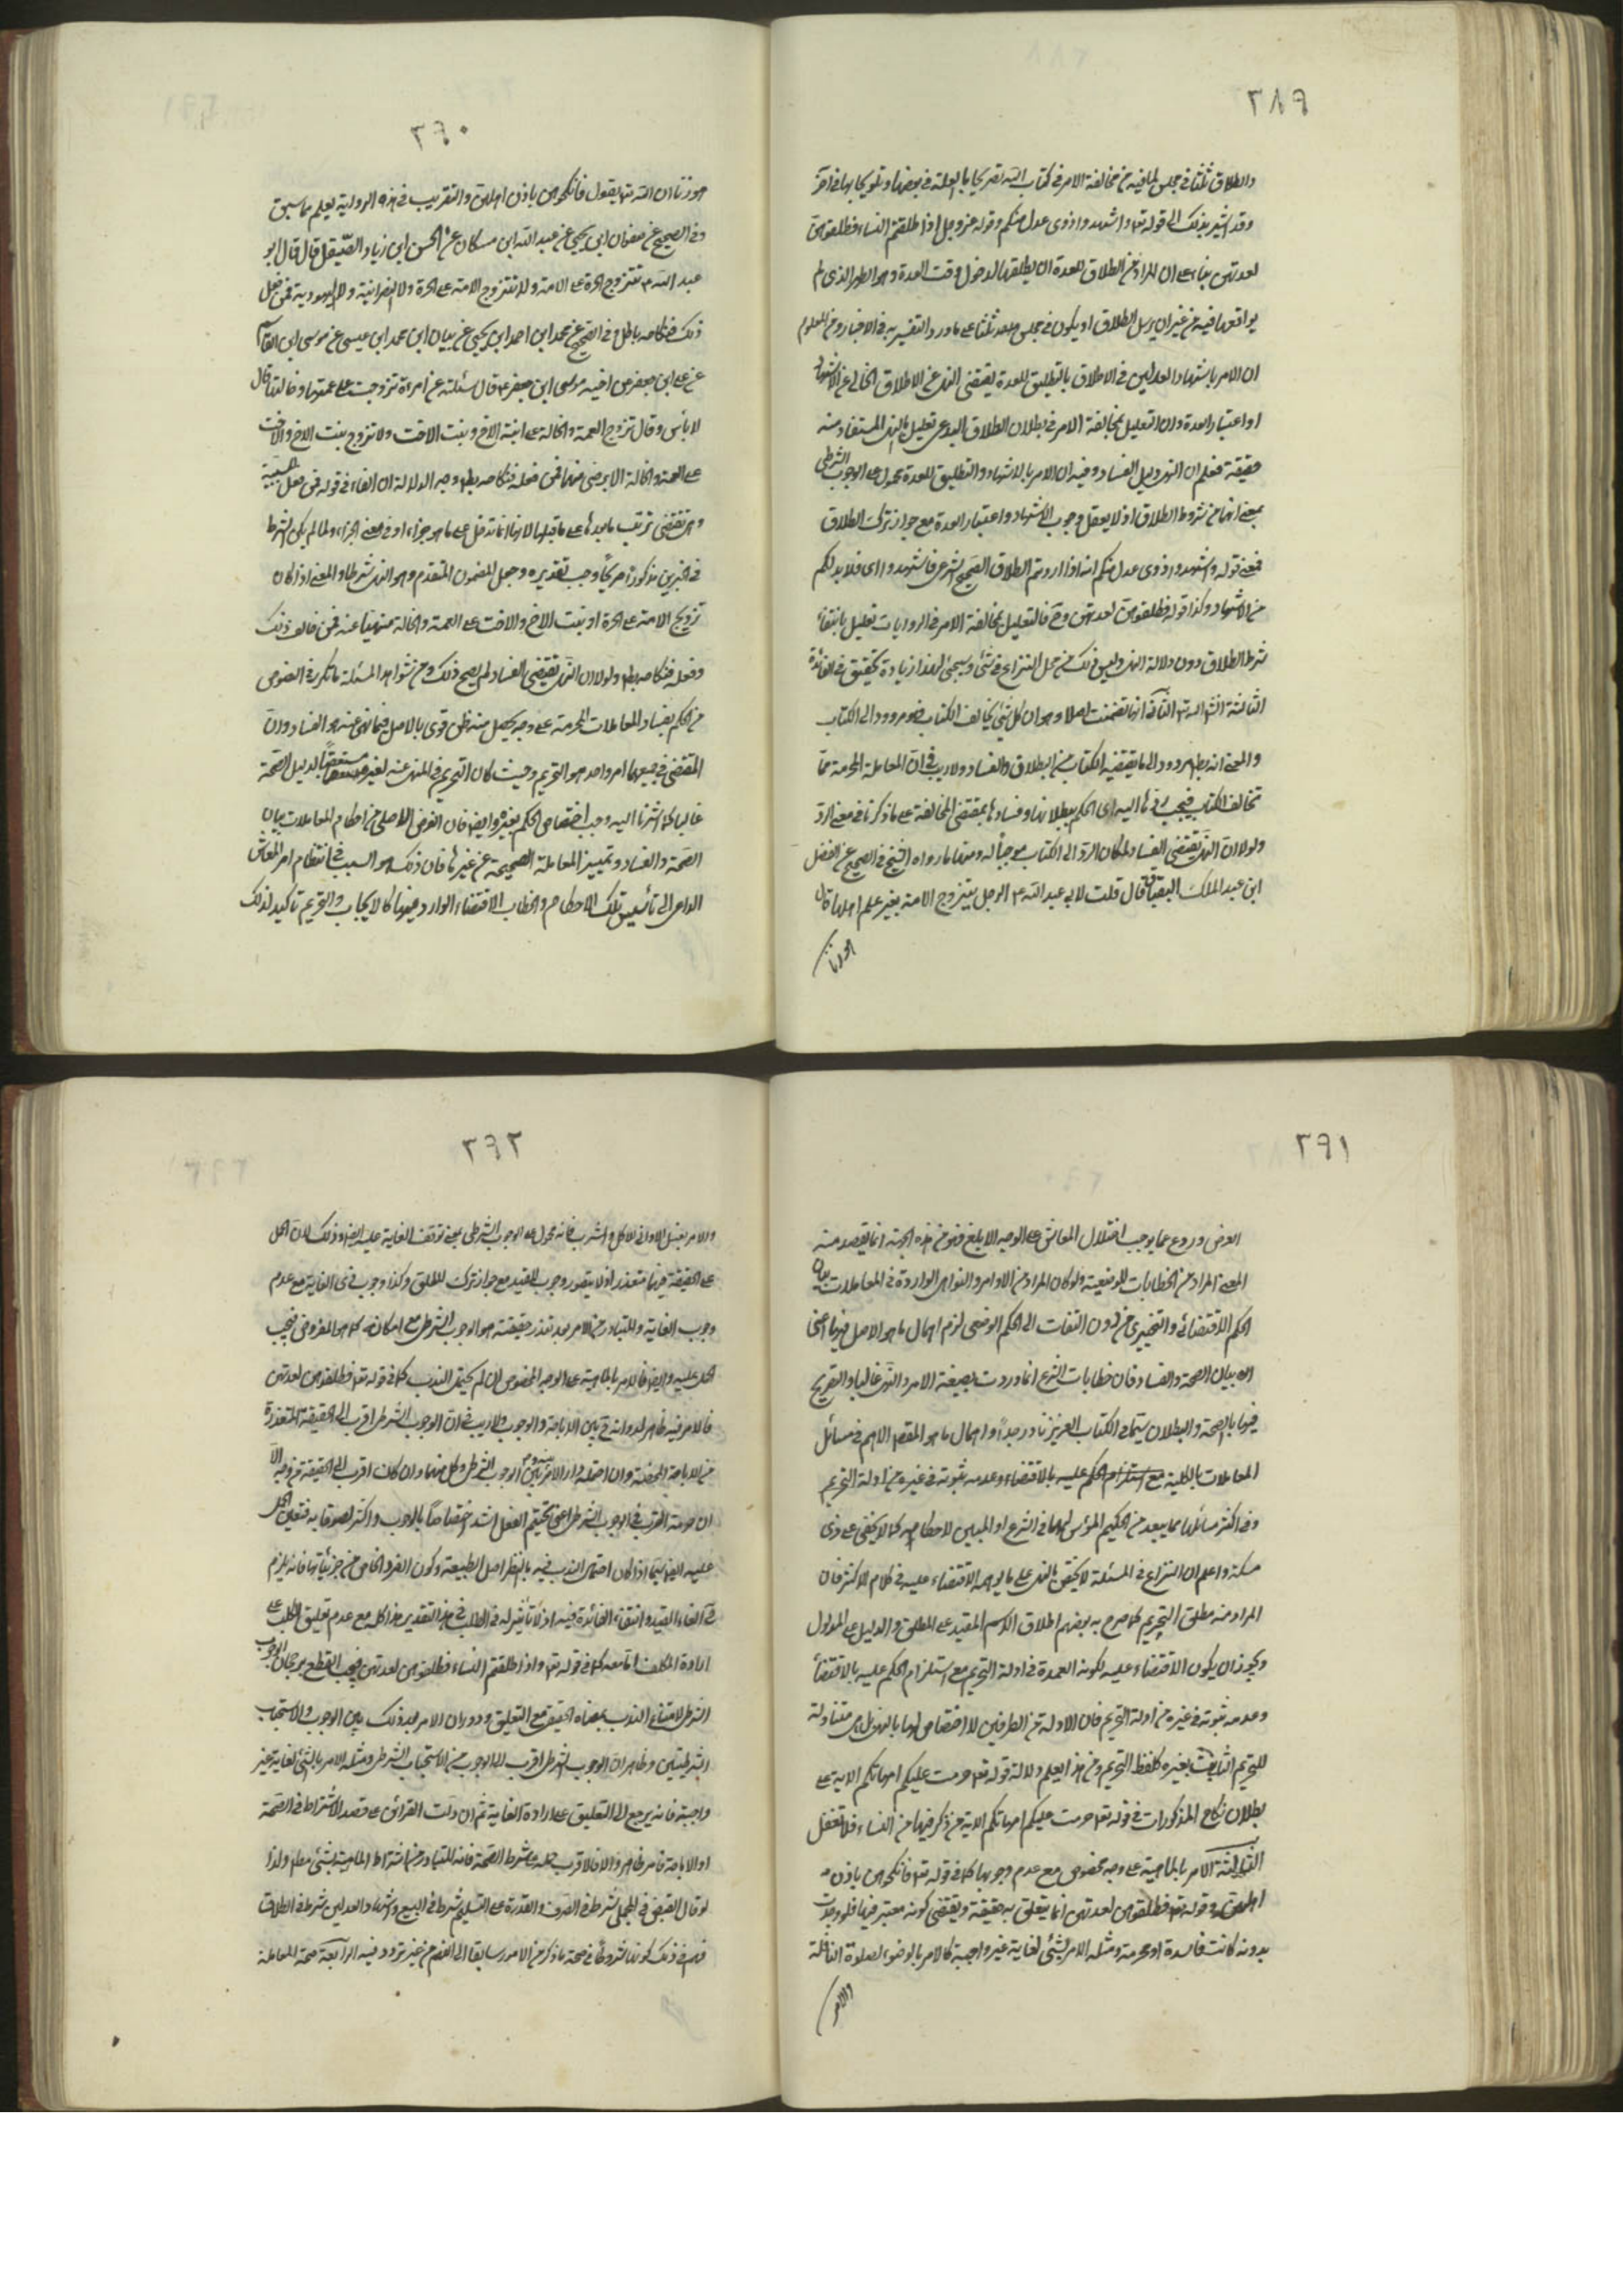 ٢٨٩
والطلاق ثلثا في مجلس لما فيه من مخالفة الامر في كتاب الله تصريحا بالعلة في بعضها وتلويحا بها في اخر
وقد اشير بذلك الى قوله تع واشهدوا ذوى عدل منكم وقوله عز وجل اذا طلقتم النساء فطلقوهن
لعدتهن بناء على ان المراد من الطلاق للعدة ان يطلقها لدخول وقت العدة وهو الطهر الذى لم
يواقعها فيه من غير ان يرسل الطلاق او يكون في مجلس ثلثا على ما ورد التفسير به في الاخبار ومن المعلوم
ان الامر باشهاد العدلين في الاطلاق بالتطليق للعدة يقتضى النهى عن الاطلاق الخالى عن الاشهاد
او اعتبار العدة وان التعليل بمخالفة الامر في بطلان الطلاق البدعى تعليل بالنهى المستفاد منه
حقيقة فعلم ان النهى دليل الفساد وفيه ان الامر بالاشهاد والتطليق للعدة محمول على الوجوب الشرطى
بمعنى انهما من شروط الطلاق اذ لا يعقل وجوب الاشهاد واعتبار العدة مع جواز ترك الطلاق
فمعنى قوله واشهدوا ذوى عدل منكم انه اذا اردتم الطلاق الصحيح الشرعى فاشهدوا اى فلا بد لكم
من الاشهاد وكذا قوله فطلقوهن لعدتهن وح فالتعليل بمخالفة الامر في الروايات تعليل بانتفاء
شرط الطلاق دون دلالة النهى وليس ذلك من محل النزاع في شئ وسيجئ لهذا زيادة تحقيق في الفائدة
الثالثة انشاء الله تع الثانى انها تضمنت اصلا وهو ان كل شئ يخالف الكتاب فهو مردود الى الكتاب
والمعنى انه يطهر مردود الى ما يقتضيه الكتاب من البطلان والفساد ولا ريب في ان المعاملة المحرمة مما
تخالف الكتاب فيجب ردها اليه اى الحكم ببطلانها وفسادها بمقتضى المخالفة على ما ذكرنا في معنى الرد
ولولا ان النهى يقتضى الفساد لما كان الرد الى الكتاب موجبا له ومنها ما رواه الشيخ في الصحيح عن الفضل
ابن عبد الملك البقباق قال قلت لابى عبد الله ع الرجل يتزوج الامة بغير علم اهلها قال
٢٩٠
هو زنا ان الله تع يقول فانكحوهن باذن اهلهن والتقريب في هذه الرواية يعلم مما سبق
وفى الصحيح عن صفوان ابن يحيى عن عبد الله ابن مسكان عن الحسن ابن زياد الصيقل قال قال ابو
عبد الله ع تتزوج الحرة على الامة ولا تتزوج الامة على الحرة ولا النصرانية ولا اليهودية فمن فعل
ذلك فنكاحه باطل وفى الصحيح عن محمد ابن احمد ابن يحيى عن بنان ابن محمد ابن عيسى عن موسى ابن القاسم
عن على ابن جعفر عن اخيه موسى ابن جعفر ع قال سئلته عن امرءة تزوجت على عمتها وخالتها قال
لا بأس وقال تزوج العمة والخالة على ابنة الاخ وبنت الاخت ولا تزوج بنت الاخ والاخت
على العمة والخالة الا برضى منهما فمن فعله فنكاحه بطل وجه الدلالة ان الفاء في قوله فمن فعل سببية
وهى تقتضى ترتب ما بعدها على ما قبلها لانها انما تدخل على ما هو جزاء او في معنى الجزاء ولما لم يكن الشرط
في الخبرين مذكورا صريحا وجب تقديره وجعل المضمون المتقدم وهو النهى شرطا والمعنى اذا كان
تزويج الامة على الحرة او بنت الاخ والاخت على العمة والخالة منهيا عنه فمن خالف ذلك
وفعله فنكاحه بطل ولولا ان النهى يقتضى الفساد لم يصح ذلك ومن شواهد المسئلة ما تكرر في النصوص
من الحكم بفساد المعاملات المحرمة على وجه يحصل منه ظن قوى بالاصل فيما نهى عنه هو الفساد وان
المقتضى في جميعها امر واحد هو التحريم وحيث كان التحريم في المنهى عنه لغيره بدليل الصحة
غالبا كما اشرنا اليه وجب اختصاص الحكم بغيره وايضا فان الغرض الاصلى من احكام المعاملات بيان
الصحة والفساد وتمييز المعاملة الصحيحة عن غيرها فان ذلك هو السبب في انتظام امر المعاش
الداعى الى تأسيس تلك الاحكام والخطاب الاقتضاء الوارد فيها كالايجاب والتحريم تأكيد لذلك
٢٩١
الغرض وردع عما يوجب اختلال المعاش على الوجه الابلغ فهو من هذه الجهة انما يقصد منه
المعنى المراد من الخطابات الوضعية ولو كان المراد من الاوامر والنواهى الواردة في المعاملات بيان
الحكم الاقتضائى والتخييرى من دون التفات الى الحكم الوضعى لزم اهمال ما هو الاصل فيها اعنى
بيان الصحة والفساد فان خطابات الشرع انما وردت بصيغة الامر والنهى غالبا والتصريح
فيها بالصحة والبطلان سيما في الكتاب العزيز نادر جدا واهمال ما هو المقصد الاهم في مسائل
المعاملات بالكلية مع استلزام الحكم عليه بالاقتضاء وعدمه ثبوته في غيره من ادلة التحريم
وفى اكثر مسائلها مما يبعد من الحكيم المؤسس لها في الشرع او المبين لاحكامه كما لا يخفى على ذى
مسكة واعلم ان النزاع في المسئلة لا يختص بالنهى على ما يوهمه الاقتضاء عليه في كلام الاكثر فان
المراد منه مطلق التحريم كما صرح به بعضهم اطلاق الاسم المقيد على المطلق والدليل على المدلول
ويجوز ان يكون الاقتضاء عليه لكونه العمدة في ادلة التحريم مع استلزام الحكم عليه بالاقتضاء
وعدمه ثبوته في غيره من ادلة التحريم فان الادلة من الطرفين لا اختصاص لها بالنهى بل هى متناولة
للتحريم الثابت بغيره كلفظ التحريم ومن هنا يعلم دلالة قوله تعالى حرمت عليكم امهاتكم الاية على
بطلان نكاح المذكورات في قوله تع حرمت عليكم امهاتكم الاية من ذكر فيها من النساء فلا تغفل
الثالثة الامر بالماهية على وجه مخصوص مع عدم وجوبها كما في قوله تع فانكحوهن باذن
اهلهن وقوله تع فطلقوهن لعدتهن انما يتعلق به حقيقة ويقتضى كونه معتبر فيها فلو وجدت
بدونه كانت فاسدة او محرمة ومثله الامر بشئ لغاية غير واجبة كالامر بالوضوء لصلوة النافلة
والامر
٢٩٢
والامر بغسل الاوانى للاكل والشرب فانه محمول على الوجوب الشرطى بمعنى توقف الغاية عليه ايضا وذلك لان الحمل
على الحقيقة فيها متعذر اذ لا يتصور وجوب المقيد مع جواز ترك المطلق وكذا وجوب ذى الغاية مع عدم
وجوب الغاية والمتبادر من الامر بعد تعذر حقيقته هو الوجوب الشرطى مع امكانه كما هو المفروض فيجب
الحمل عليه وايضا فالامر بالماهية على الوجه المخصوص ان لم يحتمل الندب كما في قوله تع فطلقوهن لعدتهن
فالامر فيه ظاهر لدورانه ح بين الاباحة والوجوب ولا ريب في ان الوجوب الشرطى اقرب الى الحقيقة المتعذرة
من الاباحة المحضة وان احتمله دار الامر بينه وبين الوجوب الشرطى وكل منهما وان كان اقرب الى الحقيقة من وجه الا
ان جهة القرب في الوجوب الشرطى اعنى تحتم الفعل اشد اختصاصا بالوجوب واكثر لصوقا به فتعين الحمل
عليه ايضا سيما اذا كان احتمال الندب فيه بالنظر اصل الطبيعة وكون الفرد الخاص من جزئياتها فانه يلزم
ح الغاء القيد وانتفاء الفائدة فيه اذ لا تأثير له في الطلب في هذا التقدير هذا كله مع عدم تعليق الطلب على
ارادة المكلف اما معه كما في قوله تع واذا طلقتم النساء فطلقوهن لعدتهن فيجب القطع برجحان الوجوب
الشرطى لامتناع الندب بمعناه الحقيقى مع التعليق ودوران الامر بعد ذلك بين الوجوب والاستحباب
الشرطيتين وظاهر ان الوجوب الشرطى اقرب الى الوجوب من الاستحباب الشرطى ومثله الامر بالشئ لغاية غير
واجبة فانه يرجع الى التعليق على ارادة الغاية ثم ان دلت القرائن على قصد الاشتراط في الصحة
او الاباحة فامر ظاهر والا فالاقرب حمله على شرط الصحة فانه المتبادر من اشتراط الماهية بشئ مطلقا ولذا
لو قال القبض في المجلس شرط في الصرف والقدرة على التسليم شرط في البيع واشهاد العدلين شرط في الطلاق
فهم من ذلك كونها شروطا في صحة ما ذكر من الامور سابقا الى الفهم من غير تردد فيه الرابعة صحة المعاملة